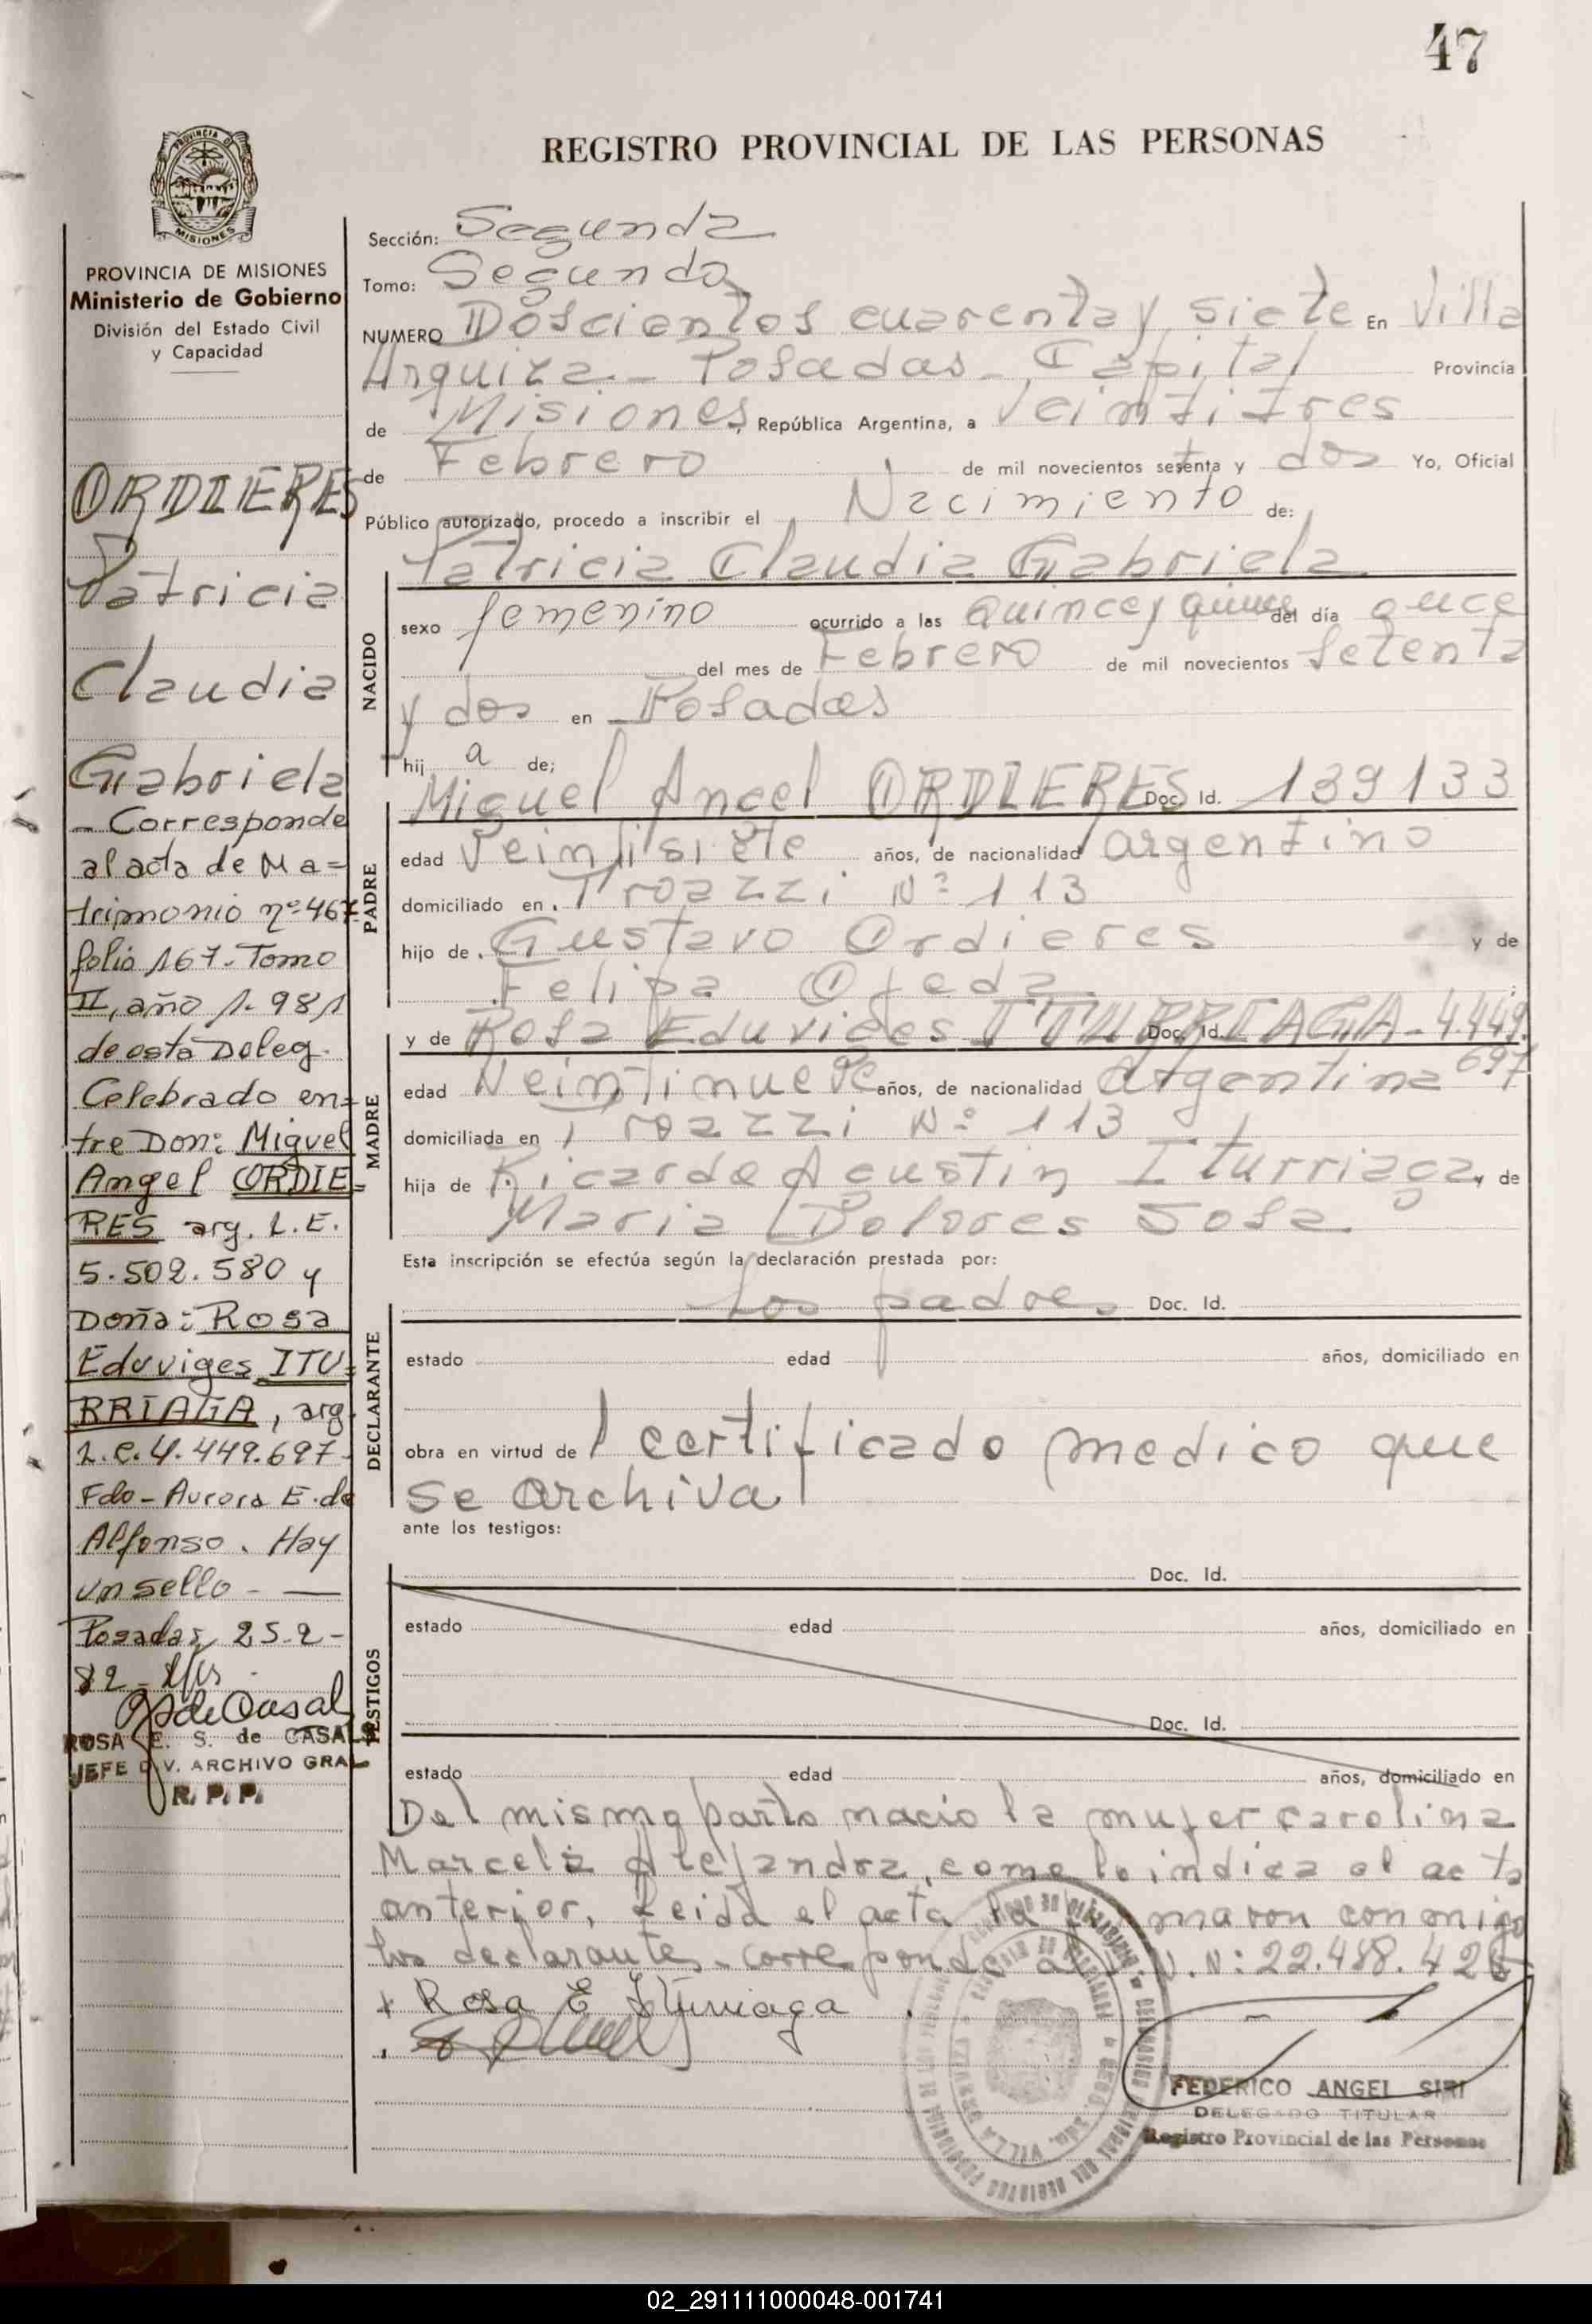 47
REGISTRO PROVINCIAL DE LAS PERSONAS
PROVINCIA DE MISIONES
Ministerio de Gobierno
División del Estado Civil
y Capacidad
ORDIERES
Patricia
Claudia
Gabriela
- Corresponde
al acta de Ma=
trimonio nº 467
folio 167. Tomo
II, año 1.981
de esta Deleg.
Celebrado en=
tre Don: Miguel
Angel ORDIE=
RES arg. L.E.
5.502.580 y
Doña: Rosa
Eduviges ITU=
RRIAGA, arg.
L.C. 4.449.697-
Fdo - Aurora E. de
Alfonso. Hay
un sello -
Posadas, 25-2-
82-
ROSA E. S. de CASALS
JEFE DIV. ARCHIVO GRAL
R. P. P.
Sección: Segunda
Tomo: Segundo
NUMERO Doscientos cuarenta y siete En Villa
Urquiza - Posadas - Capital Provincia
de Misiones, República Argentina, a Veintitres
de Febrero de mil novecientos setenta y dos Yo, Oficial
Público autorizado, procedo a inscribir el Nacimiento de:
Patricia Claudia Gabriela
NACIDO
sexo femenino ocurrido a las quince y quince del día once
del mes de Febrero de mil novecientos setenta
y dos en Posadas
hij a de;
PADRE
Miguel Angel ORDIERES Doc. Id. 139133
edad Veintisiete años, de nacionalidad argentino
domiciliado en Troazzi Nº 113
hijo de Gustavo Ordieres y de
Felipa Ojeda
MADRE
y de Rosa Eduviges ITURRIAGA - Doc. Id. 4.449.
697
edad Veintinueve años, de nacionalidad argentina
domiciliada en Troazzi Nº 113
hija de Ricardo Agustin Iturriaga, y de
Maria Dolores Sosa
Esta inscripción se efectúa según la declaración prestada por:
DECLARANTE
Los padres Doc. Id.
estado edad años, domiciliado en
obra en virtud de l certificado medico que
se archiva
ante los testigos:
TESTIGOS
Doc. Id.
estado edad años, domiciliado en
Doc. Id.
estado edad años, domiciliado en
Del mismo parto nacio la mujer Carolina
Marcela Alejandra, como lo indica el acta
anterior, Leida el acta la firmaron conmigo
los declarantes. corresponde al N.N: 22.488.426
+ Rosa E Iturriaga
FEDERICO ANGEL SIRI
DELEGADO TITULAR
Registro Provincial de las Personas
02_291111000048-001741